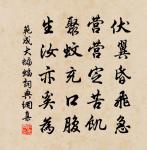 伏翼昏飛急
營營定苦飢
聚蚊充口腹
生汝亦奚為
范成大蝙蝠詞典網集